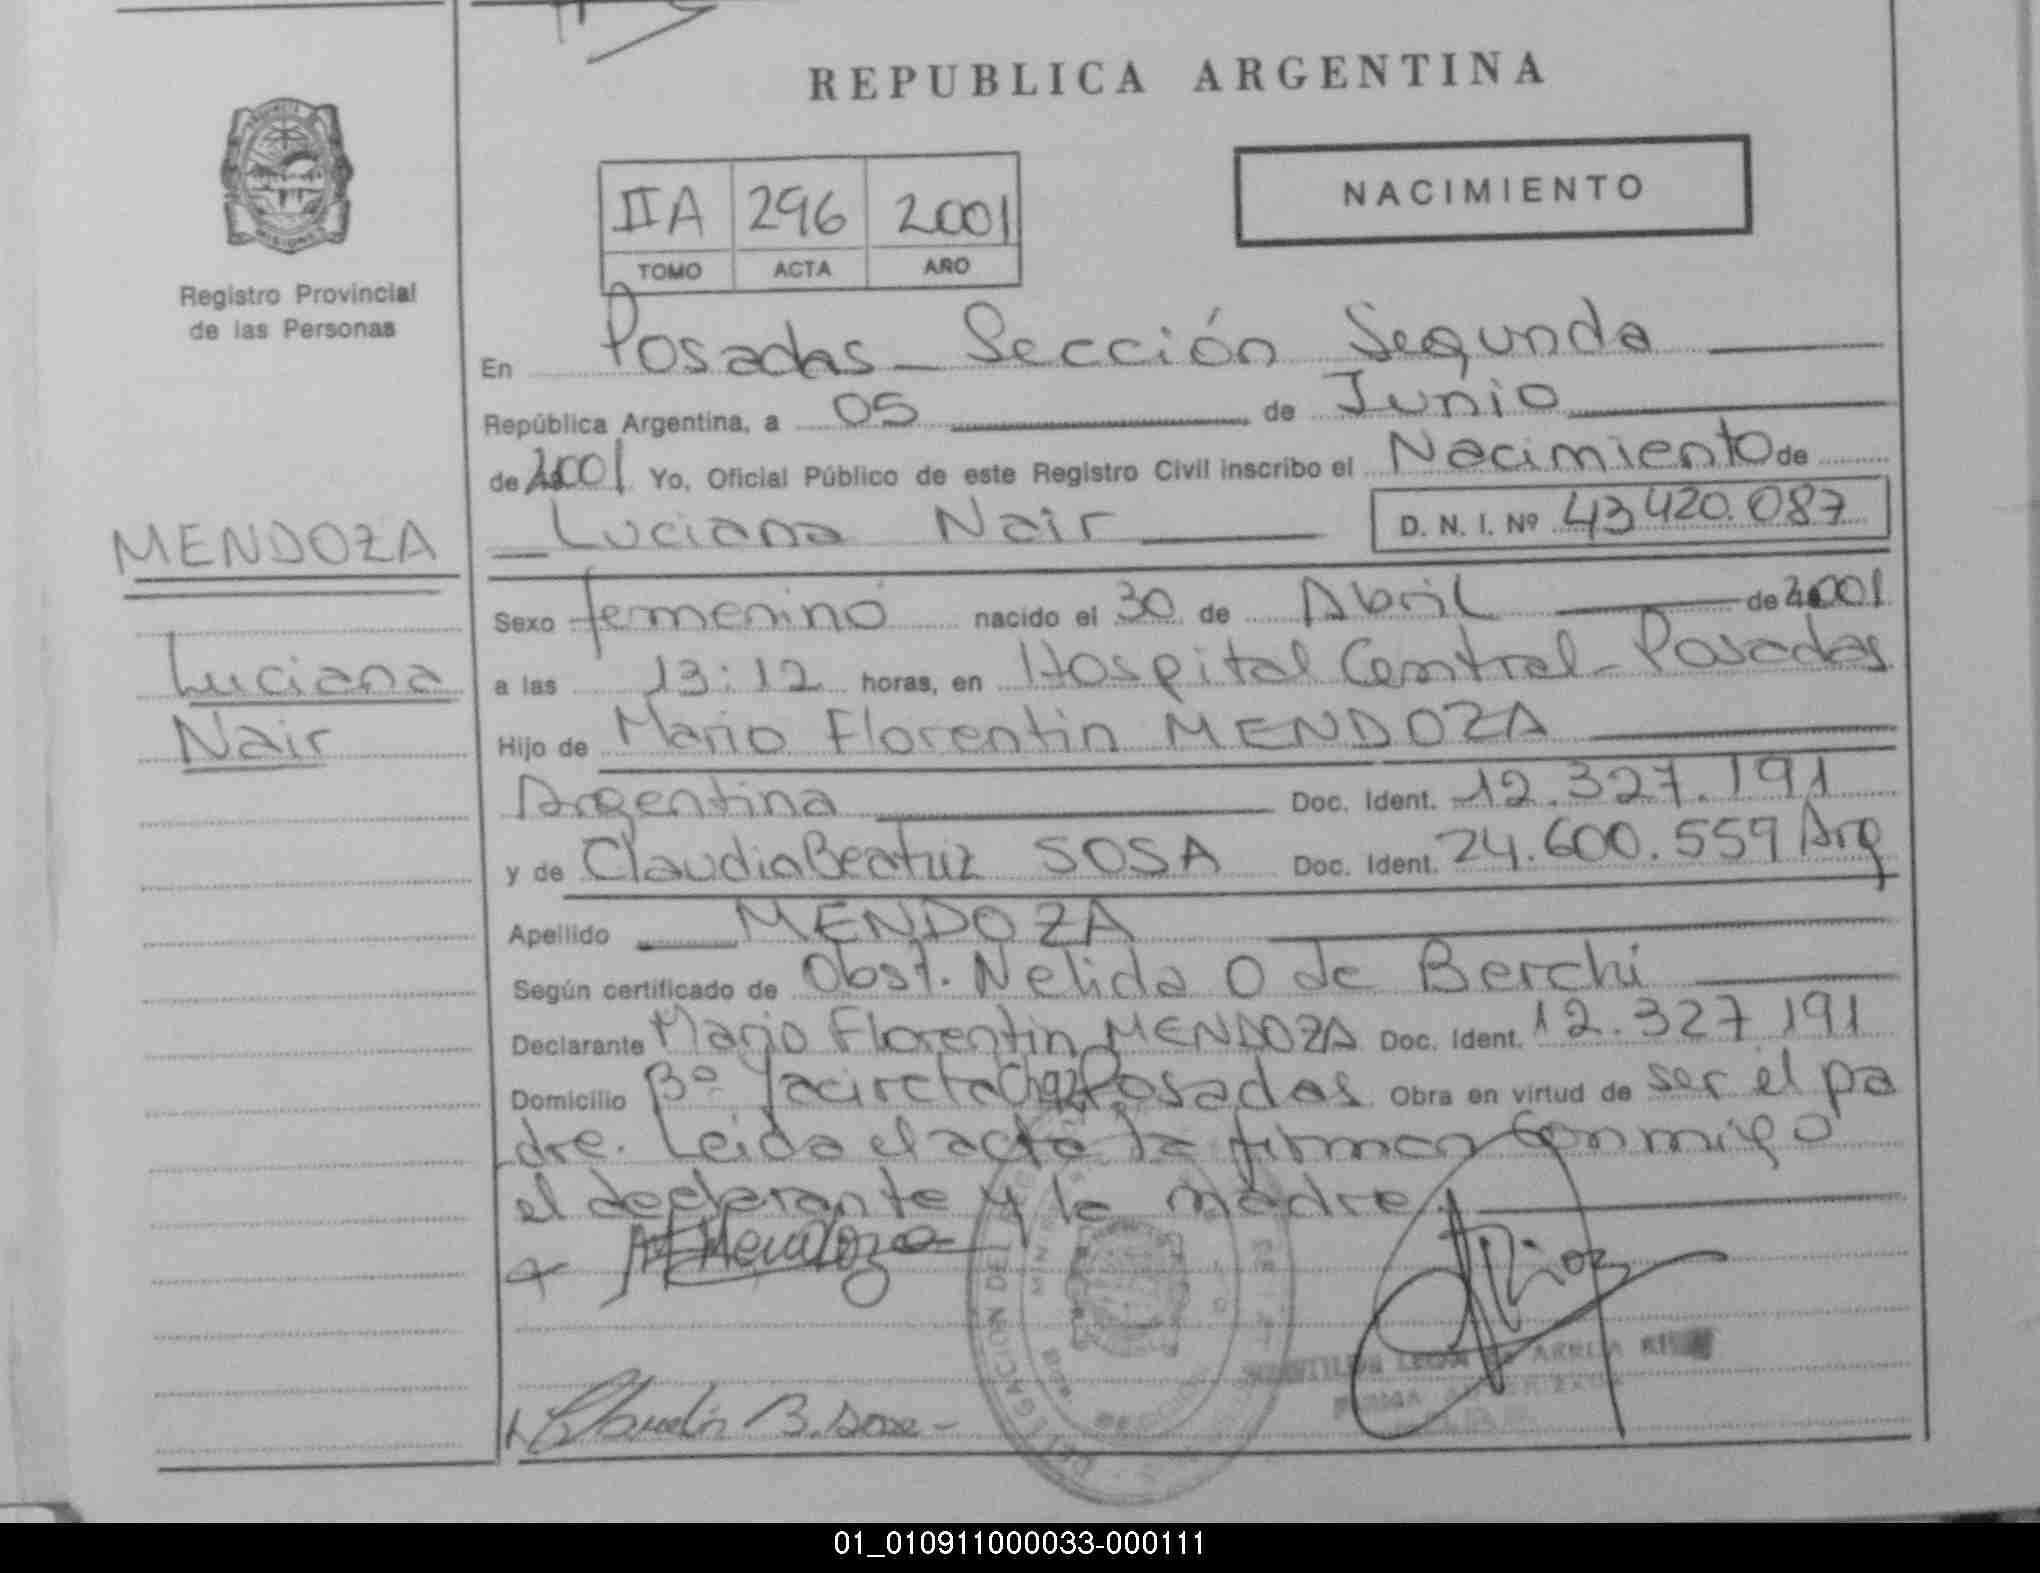 REPUBLICA ARGENTINA
NACIMIENTO
IIA 296 2001
TOMO ACTA AÑO
MISIONES
Registro Provincial
de las Personas
MENDOZA
Luciana
Nair
En Posadas - Sección Segunda
República Argentina, a 05 de Junio
de 2001 Yo, Oficial Público de este Registro Civil inscribo el Nacimiento de
Luciana Nair D. N. I. Nº 43 420.087
Sexo femenino nacido el 30 de Abril de 2001
a las 13:12 horas, en Hospital Central - Posadas
Hijo de Mario Florentin MENDOZA
Argentina Doc. Ident. 12.327.191
y de Claudia Beatriz SOSA Doc. Ident. 24.600.559 Arg
Apellido MENDOZA
Según certificado de Obst. Nelida O de Berchi
Declarante Mario Florentin MENDOZA Doc. Ident. 12.327 191
Domicilio Bº Yacireta Posadas Obra en virtud de ser el pa
dre. Leida el acta la firman conmigo
el declarante y la madre.
Mendoza
Claudia B. Sosa -
DELEGACION DEL
01_010911000033-000111